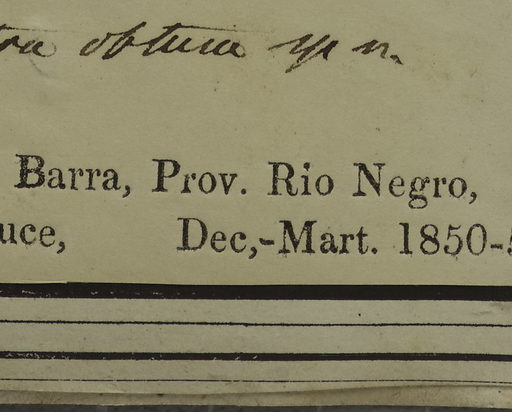 obtusa sp n.
Barra, Prov. Rio Negro,
uce, Dec,-Mart. 1850-5